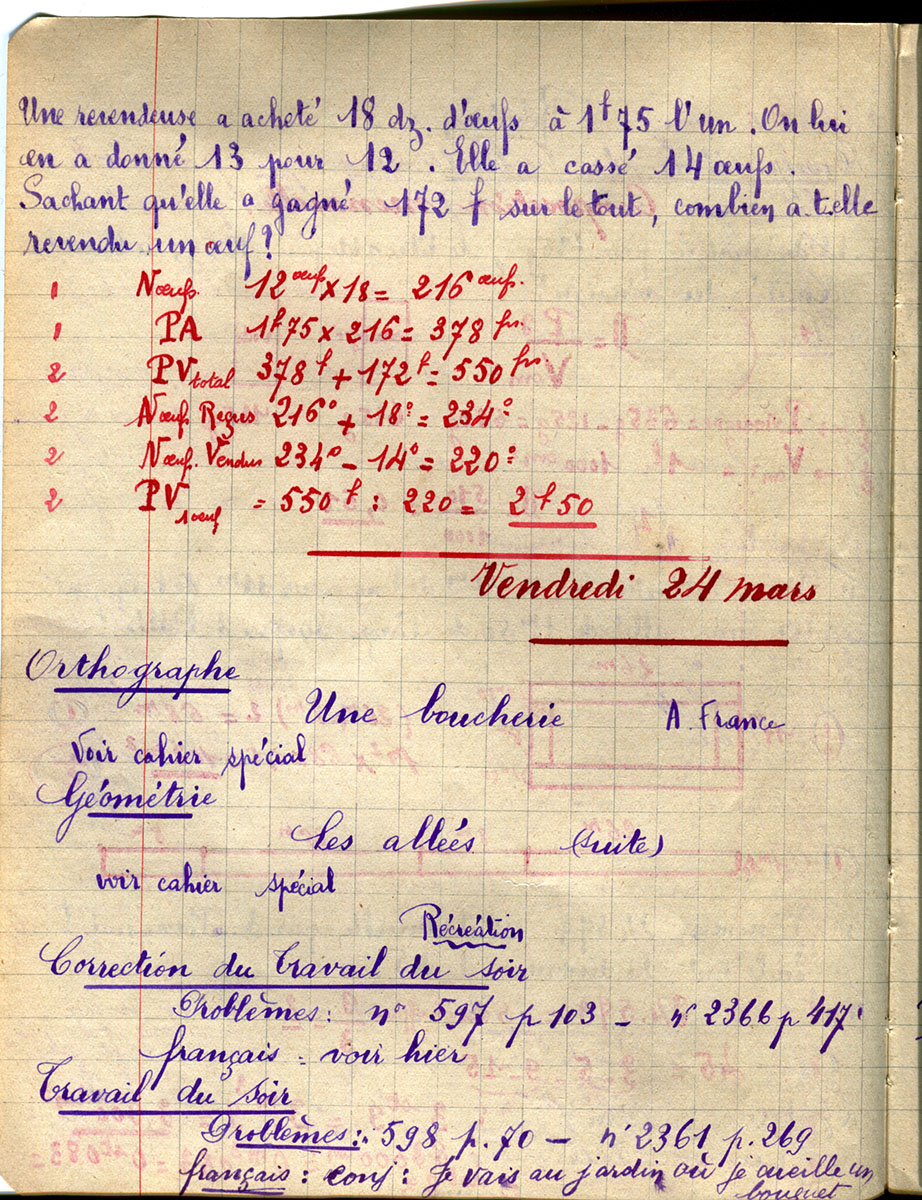 Une revendeuse a acheté 18 dz. d'œufs à 1f75 l'un. On lui
en a donné 13 pour 12. Elle a cassé 14 œufs.
Sachant qu'elle a gagné 172 f sur le tout, combien a.t.elle
revendu un œuf?
1 Nœufs. 12œufs x 18 = 216 œufs.
1 PA 1f75 x 216 = 378 frs.
2 PV total 378f + 172f = 550 frs
2 Nœufs Reçus 216° + 18° = 234°
2 Nœuf. Vendus 234° - 14° = 220°
2 PV 1 œuf = 550f : 220 = 2f50
Vendredi 24 mars
Orthographe
Une boucherie A. France
Voir cahier spécial
Géométrie
Les allées (suite)
voir cahier spécial
Récréation
Correction du Travail du soir
Problèmes: n° 597 p 103 - n° 2366 p 417
français = voir hier
Travail du soir
Problèmes: n° 598 p. 70 - n° 2361 p. 269
français: conj: Je vais au jardin où je cueille un
bouquet